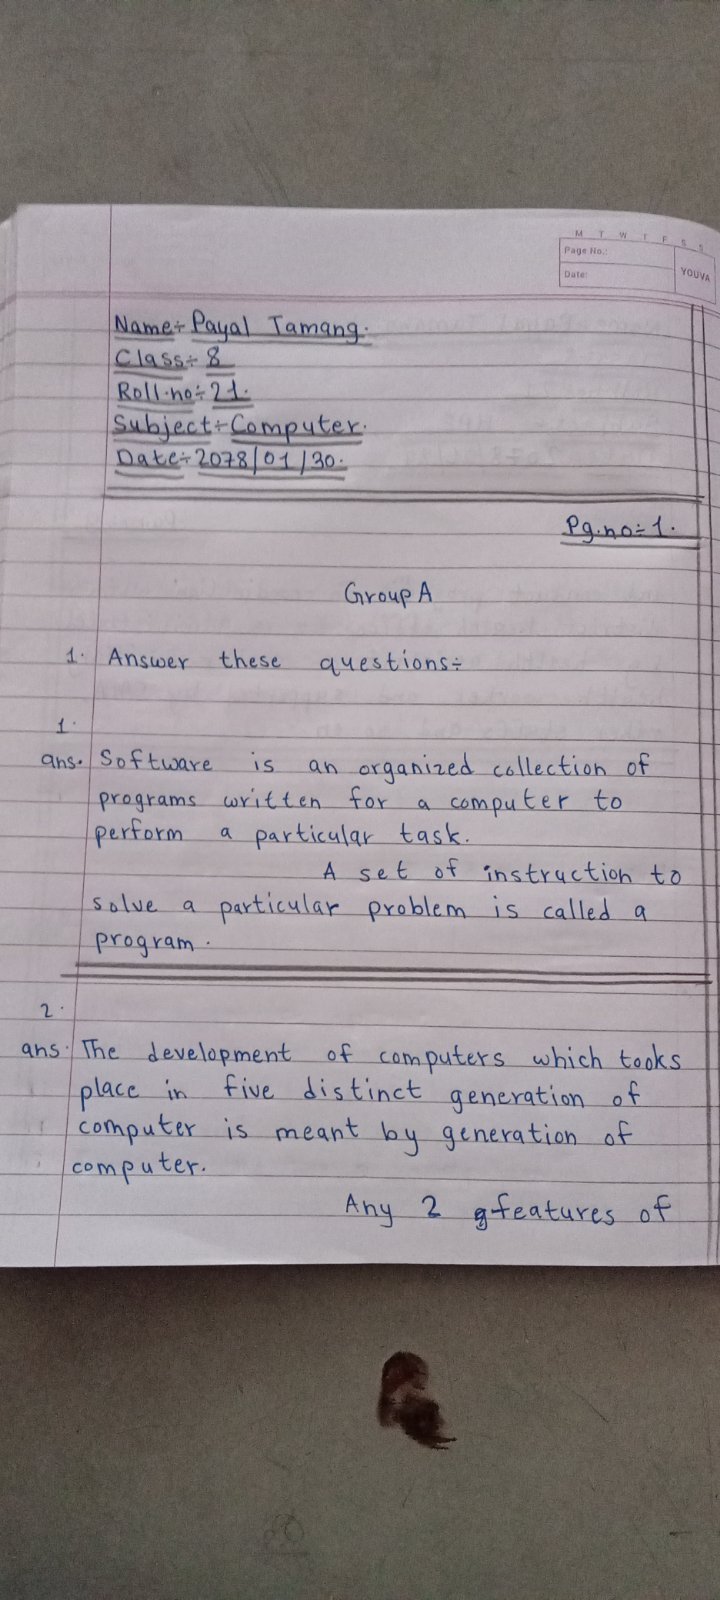 M T W T F S S
Page No.:
Date:
YOUVA
Name÷ Payal Tamang.
Class÷ 8
Roll.no÷ 21.
Subject÷ Computer.
Date÷ 2078/01/30.
Pg.no÷ 1.
Group A
1. Answer these questions÷
1.
ans. Software is an organized collection of
programs written for a computer to
perform a particular task.
A set of instruction to
solve a particular problem is called a
program.
2.
ans. The development of computers which tooks
place in five distinct generation of
computer is meant by generation of
computer.
Any 2 features of